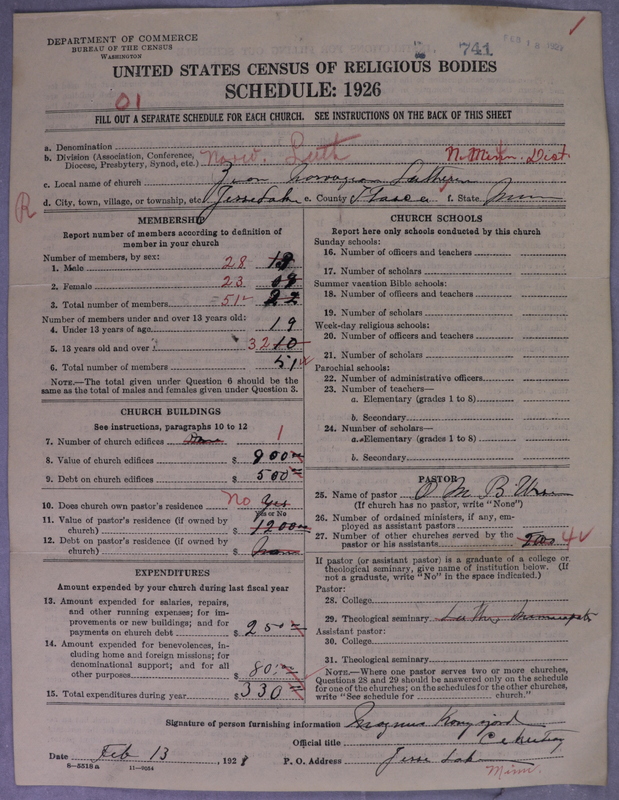 DEPARTMENT OF COMMERCE
BUREAU OF THE CENSUS
WASHINGTON
741
1
UNITED STATES CENSUS OF RELIGIOUS BODIES
SCHEDULE: 1926
01
FILL OUT A SEPARATE SCHEDULE FOR EACH CHURCH. SEE INSTRUCTIONS ON THE BACK OF THIS SHEET
a. Denomination
b. Division (Association, Conference, Diocese, Presbytery, Synod, etc.) Norw. Luth N. Minn. Dist.
c. Local name of church Zion Norwegian Lutheran
d. City, town, village, or township, etc. Jesse Lake e. County Itasca f. State Minn
R
MEMBERSHIP
Report number of members according to definition of member in your church
Number of members, by sex:
1. Male 28
2. Female 23
3. Total number of members =51
Number of members under and over 13 years old:
4. Under 13 years of age 19
5. 13 years old and over 32 10
6. Total number of members 51
NOTE.—The total given under Question 6 should be the same as the total of males and females given under Question 3.
CHURCH BUILDINGS
See instructions, paragraphs 10 to 12
7. Number of church edifices 1
8. Value of church edifices $ 900
9. Debt on church edifices $ 500
10. Does church own pastor's residence No Yes
Yes or No
11. Value of pastor's residence (if owned by church) $ 1200
12. Debt on pastor's residence (if owned by church) $
EXPENDITURES
Amount expended by your church during last fiscal year
13. Amount expended for salaries, repairs, and other running expenses; for improvements or new buildings; and for payments on church debt $ 250
14. Amount expended for benevolences, including home and foreign missions; for denominational support; and for all other purposes 80
15. Total expenditures during year $ 330
CHURCH SCHOOLS
Report here only schools conducted by this church
Sunday schools:
16. Number of officers and teachers
17. Number of scholars
Summer vacation Bible schools:
18. Number of officers and teachers
19. Number of scholars
Week-day religious schools:
20. Number of officers and teachers
21. Number of scholars
Parochial schools:
22. Number of administrative officers
23. Number of teachers—
a. Elementary (grades 1 to 8)
b. Secondary
24. Number of scholars—
a. Elementary (grades 1 to 8)
b. Secondary
PASTOR
25. Name of pastor O M B
(If church has no pastor, write "None")
26. Number of ordained ministers, if any, employed as assistant pastors
27. Number of other churches served by the pastor or his assistants 4
If pastor (or assistant pastor) is a graduate of a college or theological seminary, give name of institution below. (If not a graduate, write "No" in the space indicated.)
Pastor:
28. College
29. Theological seminary Luther
Assistant pastor:
30. College
31. Theological seminary
NOTE.—Where one pastor serves two or more churches, Questions 28 and 29 should be answered only on the schedule for one of the churches; on the schedules for the other churches, write "See schedule for church."
Signature of person furnishing information Magnus
Official title
Date Feb 13, 192 P. O. Address Jesse Lake
Minn.
8—5518a 11—9054